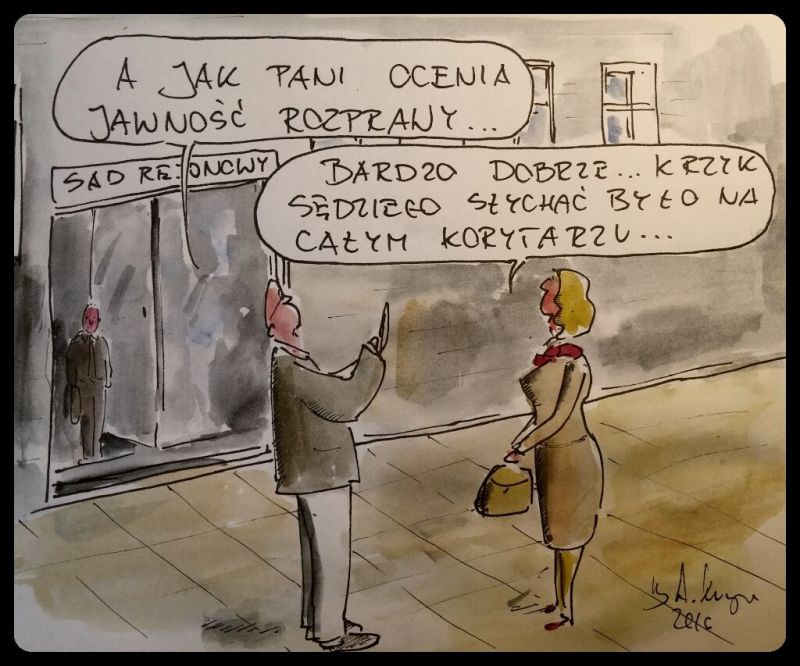 A JAK PANI OCENIA
JAWNOŚĆ ROZPRAWY...
SĄD REJONOWY
BARDZO DOBRZE... KRZYK
SĘDZIEGO SŁYCHAĆ BYŁO NA
CAŁYM KORYTARZU...